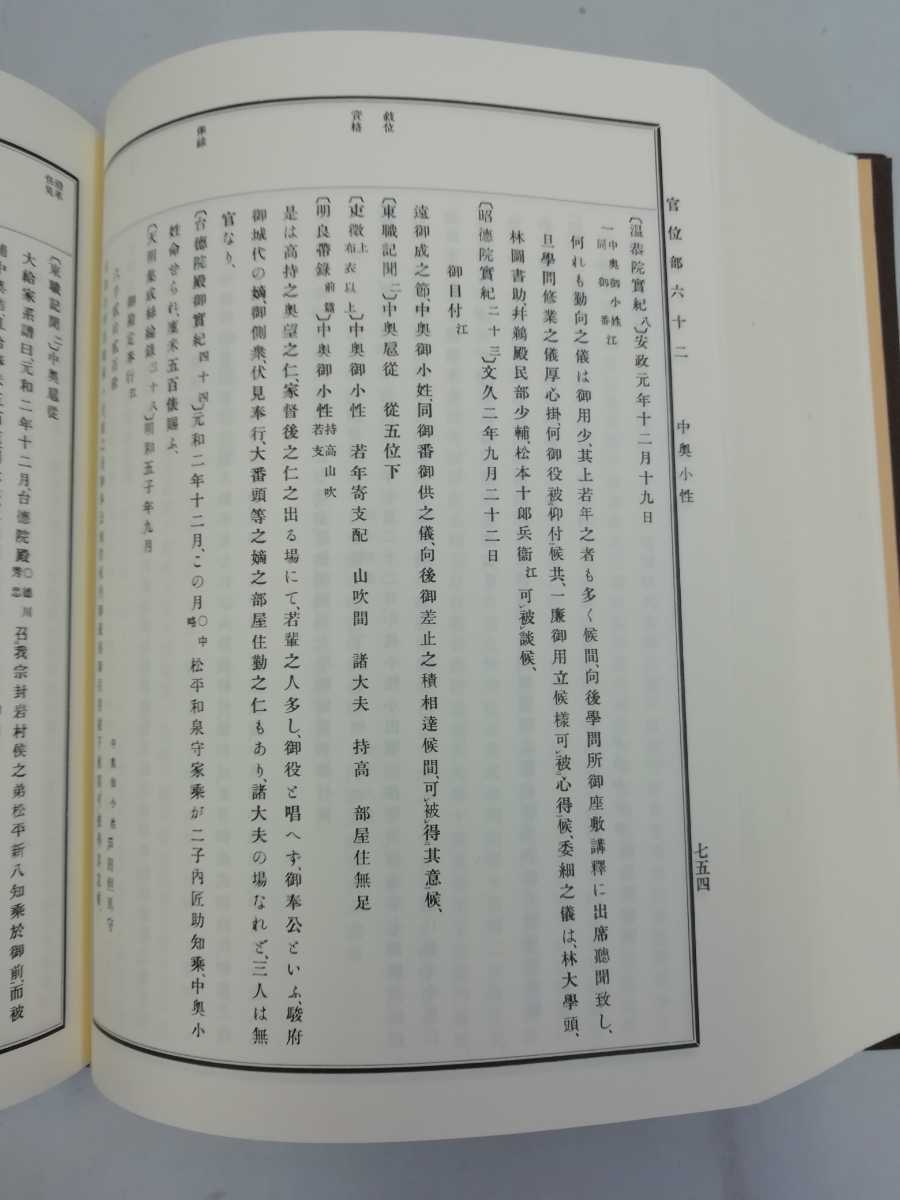 官位部六十二 中奥小性 七五四
〔温恭院實紀八〕安政元年十二月十九日
一中奥御小姓江
同御番
何れも勤向之儀は御用少、其上若年之者も多く候間、向後學問所御座敷講釋に出席聽聞致し、
旦學問修業之儀厚心掛、何御役被仰付候共、一廉御用立候樣可被心得候、委細之儀は、林大學頭、
林圖書助、幷鵜殿民部少輔、松本十郎兵衞江可被談候、
〔昭德院實紀二十三〕文久二年九月二十二日
御目付江
遠御成之節、中奥御小姓、同御番御供之儀、向後御差止之積相達候間、可被得其意候、
敍位
〔東職記聞二〕中奥扈從 從五位下
資格
〔吏徵上布衣以上〕中奥御小性 若年寄支配 山吹間 諸大夫 持高 部屋住無足
〔明良帶錄前篇〕中奥御小性持高山吹若支
是は高持之奥望之仁、家督後之仁之出る場にて、若輩之人多し、御役と唱へず、御奉公といふ、駿府
御城代の嫡、御側衆、伏見奉行、大番頭等之嫡之部屋住勤之仁もあり、諸大夫の場なれど、三人は無
官なり、
〔台德院殿御實紀四十四〕元和二年十二月、この月○中略松平和泉守家乘が二子内匠助知乘、中奥小
姓命せられ、廩米五百俵賜ふ、
〔天明集成絲綸錄三十八〕明和五子年九月
御勘定奉行江
〔東職記聞二〕中奥扈從
大給家系譜曰、元和二年十二月、台德院殿○德川秀忠召我宗封岩村侯之弟松平新八知乘於御前、而被